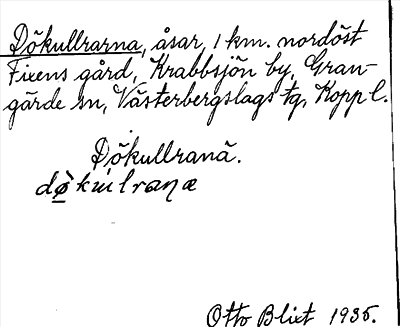 Dökullrarna, åsar, 1 km. nordöst
Fixens gård, Krabbsjön by, Gran-
gärde sn, Västerbergslags tg, Kopp l.
Dökullranä.
dø̀kuılraŋæ
Otto Blixt 1935.